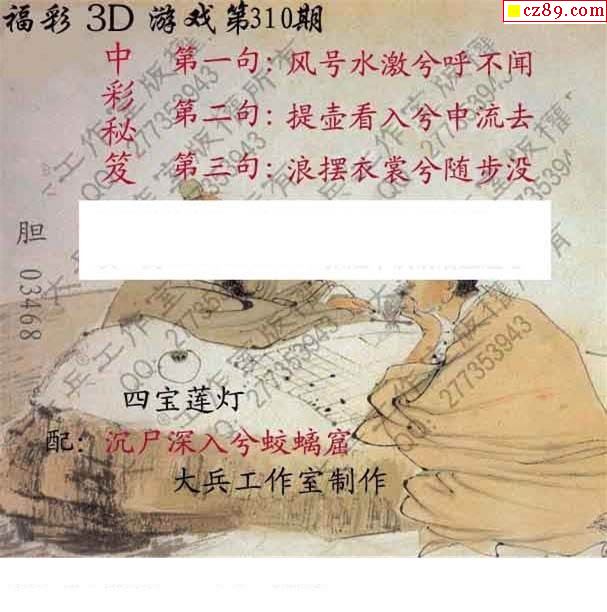 福彩 3D 游戏第310期
cz89.com
中彩秘笈
第一句：风号水激兮呼不闻
第二句：提壶看入兮中流去
第三句：浪摆衣裳兮随步没
胆 03468
四宝莲灯
配：沉尸深入兮蛟螭窟
大兵工作室制作
大兵工作室版权所有
QQ：277353943